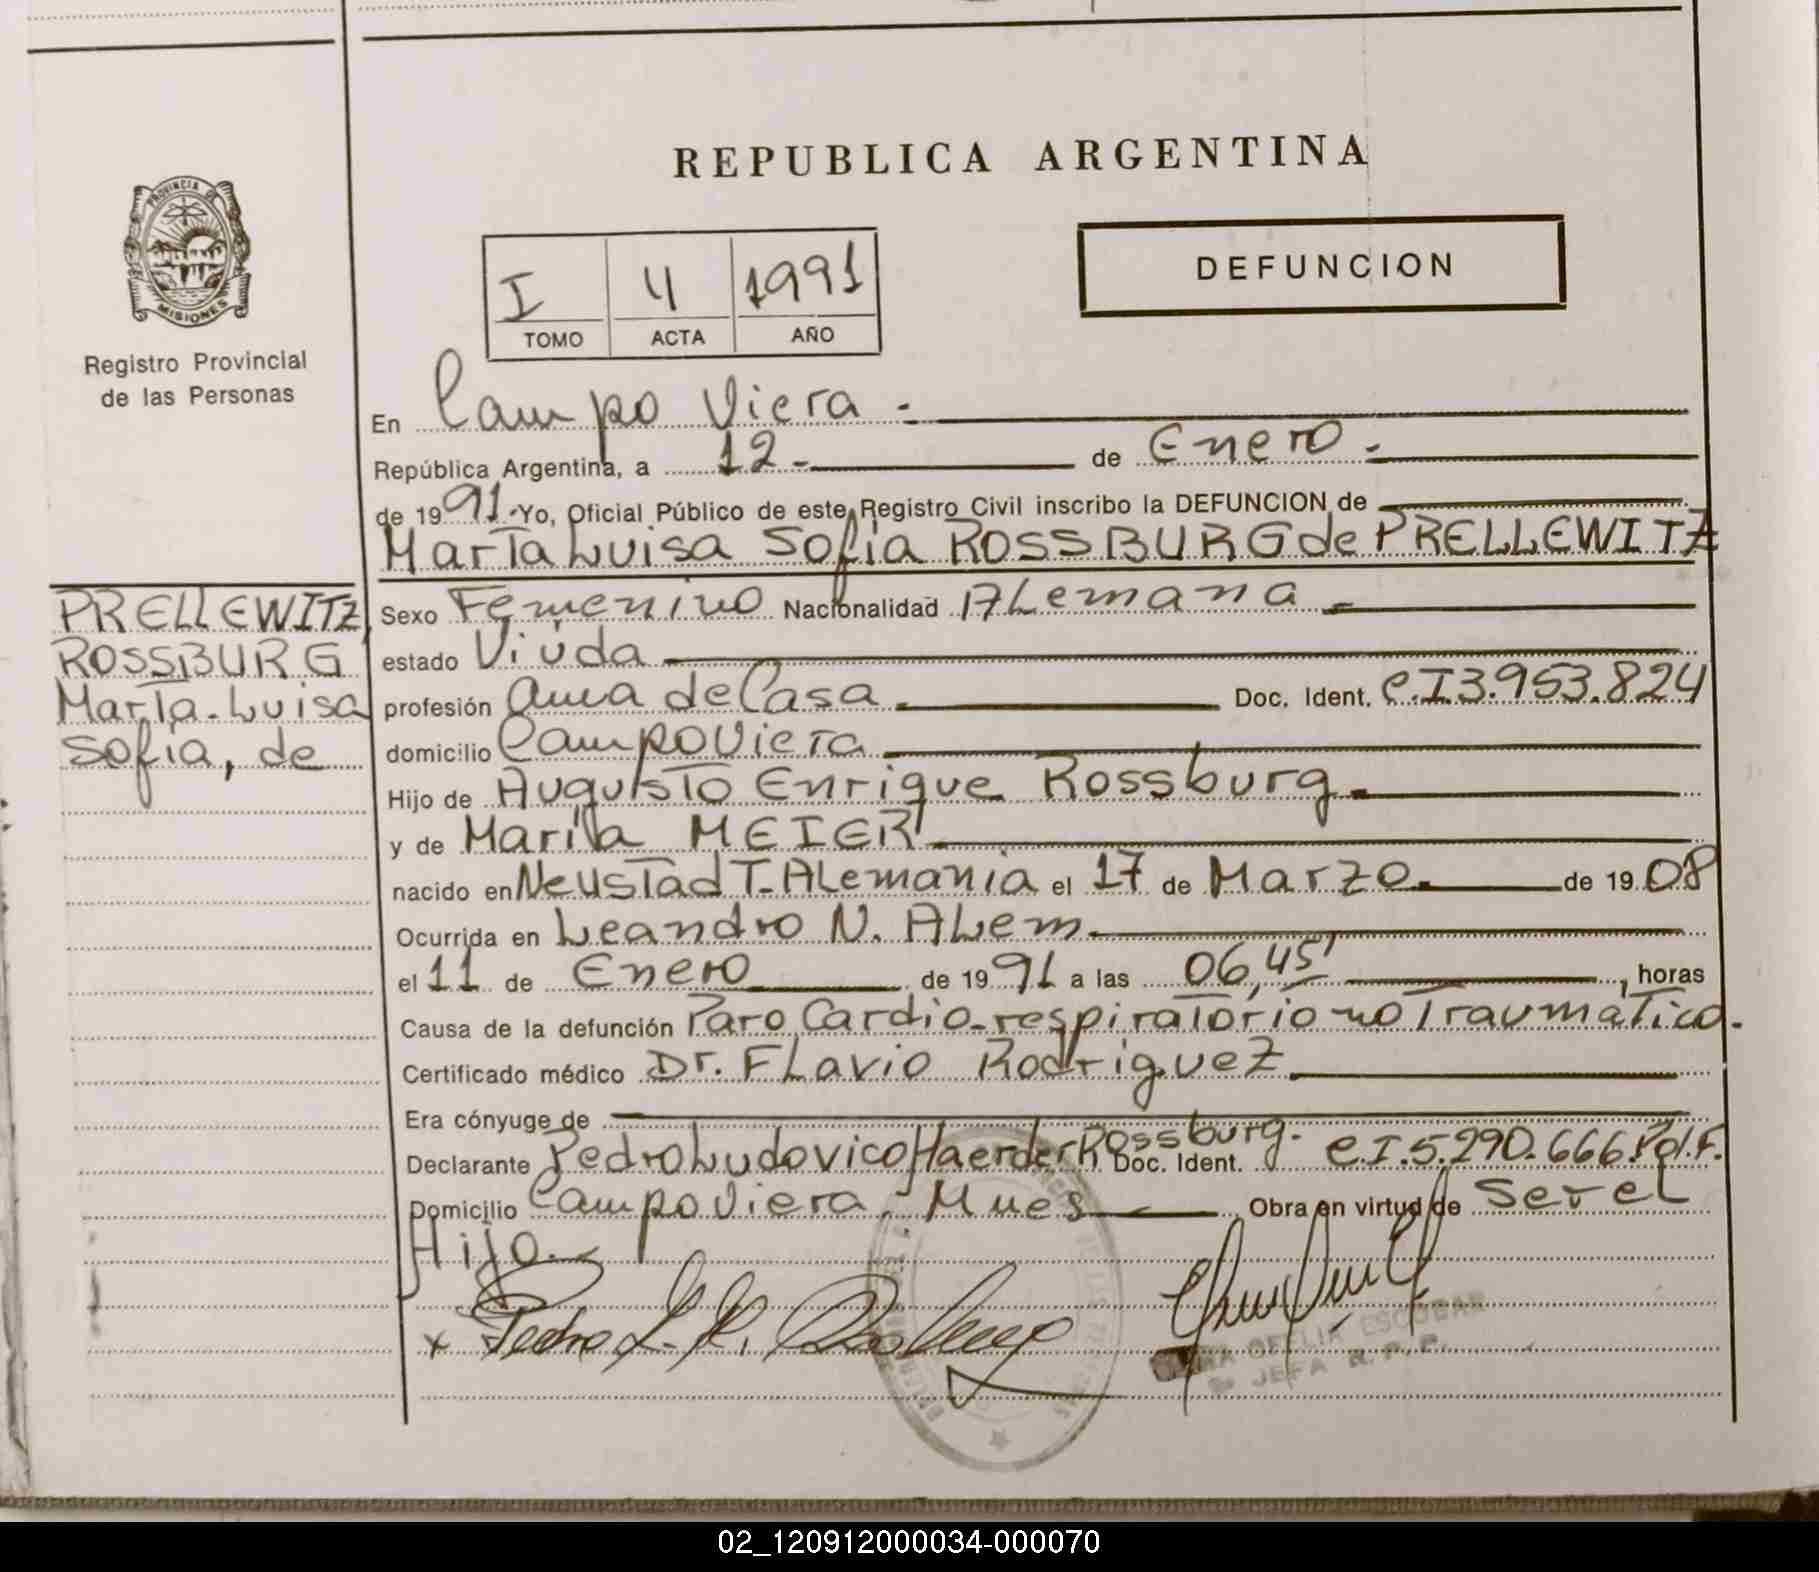 REPUBLICA ARGENTINA
PROVINCIA DE
MISIONES
Registro Provincial
de las Personas
I 4 1991
TOMO ACTA AÑO
DEFUNCION
En Campo Viera.-
República Argentina, a 12.- de Enero.-
de 1991.- Yo, Oficial Público de este Registro Civil inscribo la DEFUNCION de
Marta Luisa Sofía ROSSBURG de PRELLEWITZ
PRELLEWITZ,
ROSSBURG
Marta. Luisa
Sofía, de
Sexo Femenino Nacionalidad ALemana.-
estado Viúda
profesión ama de Casa.- Doc. Ident. C.I 3.953.824
domicilio Campo Viera
Hijo de Augusto Enrique Rossburg.-
y de María MEIER
nacido en Neustad T-ALemania el 17 de Marzo.- de 1908
Ocurrida en Leandro N. ALem.-
el 11 de Enero de 1991 a las 06,45' horas
Causa de la defunción Paro Cardio-respiratorio no Traumático.
Certificado médico Dr. FLavio Rodríguez.-
Era cónyuge de
Declarante Pedro Ludovico Haerder Rossburg.- Doc. Ident. C.I.5.290.666.Pol.F.
Domicilio Campo Viera, Mnes Obra en virtud de Ser el
Hijo.-
x Pedro L. H. Rossburg
OFELIA ESCOBAR
JEFA R.P.P.
02_120912000034-000070